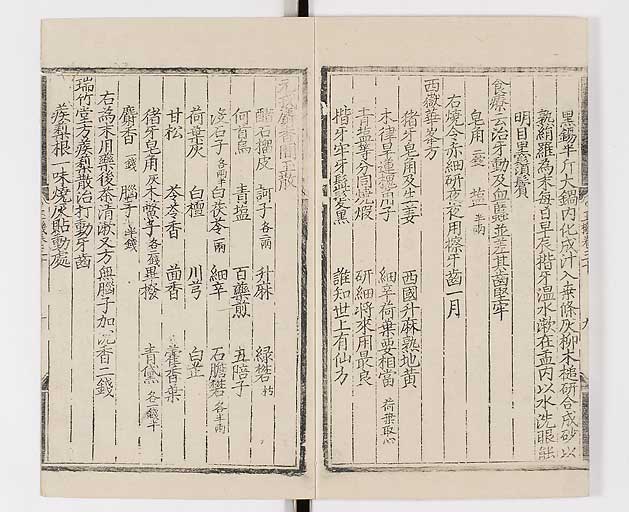 黑錫半斤大鍋內化成汁入桒條灰柳木槌研合成砂以
熟絹羅為末每日早辰揩牙溫水漱在盂內以水洗眼能
明目黑鬚鬢
食療云治牙動及血𧏾並差其齒堅牢
皂角二錢 鹽半兩
右燒令赤細研夜夜用擦牙齒一月
西嶽華峯方
猪牙皂角及生姜 西國升麻熟地黃
木律旱蓮槐角子 細辛荷葉要相當荷葉取心
青塩等分同燒煅 研細將來用最良
揩牙牢牙鬢髮黑 誰知世上有仙方
散
醋石榴皮 訶子各二兩 升麻 綠礬
何首烏 青塩 百藥煎 五陪子
沒石子各兩 白茯苓一兩 細辛 石膽礬各半兩
荷葉灰 白檀 川芎 白芷
甘松 苓苓香 茴香 藿香葉
猪牙皂角灰 木鱉子各二錢 蓽撥 青黛各錢半
麝香一錢 腦子半錢
右為末用藥後茶清漱又方無腦子加沉香二錢
瑞竹堂方蒺梨散治打動牙齒
蒺梨根一味燒灰貼動處